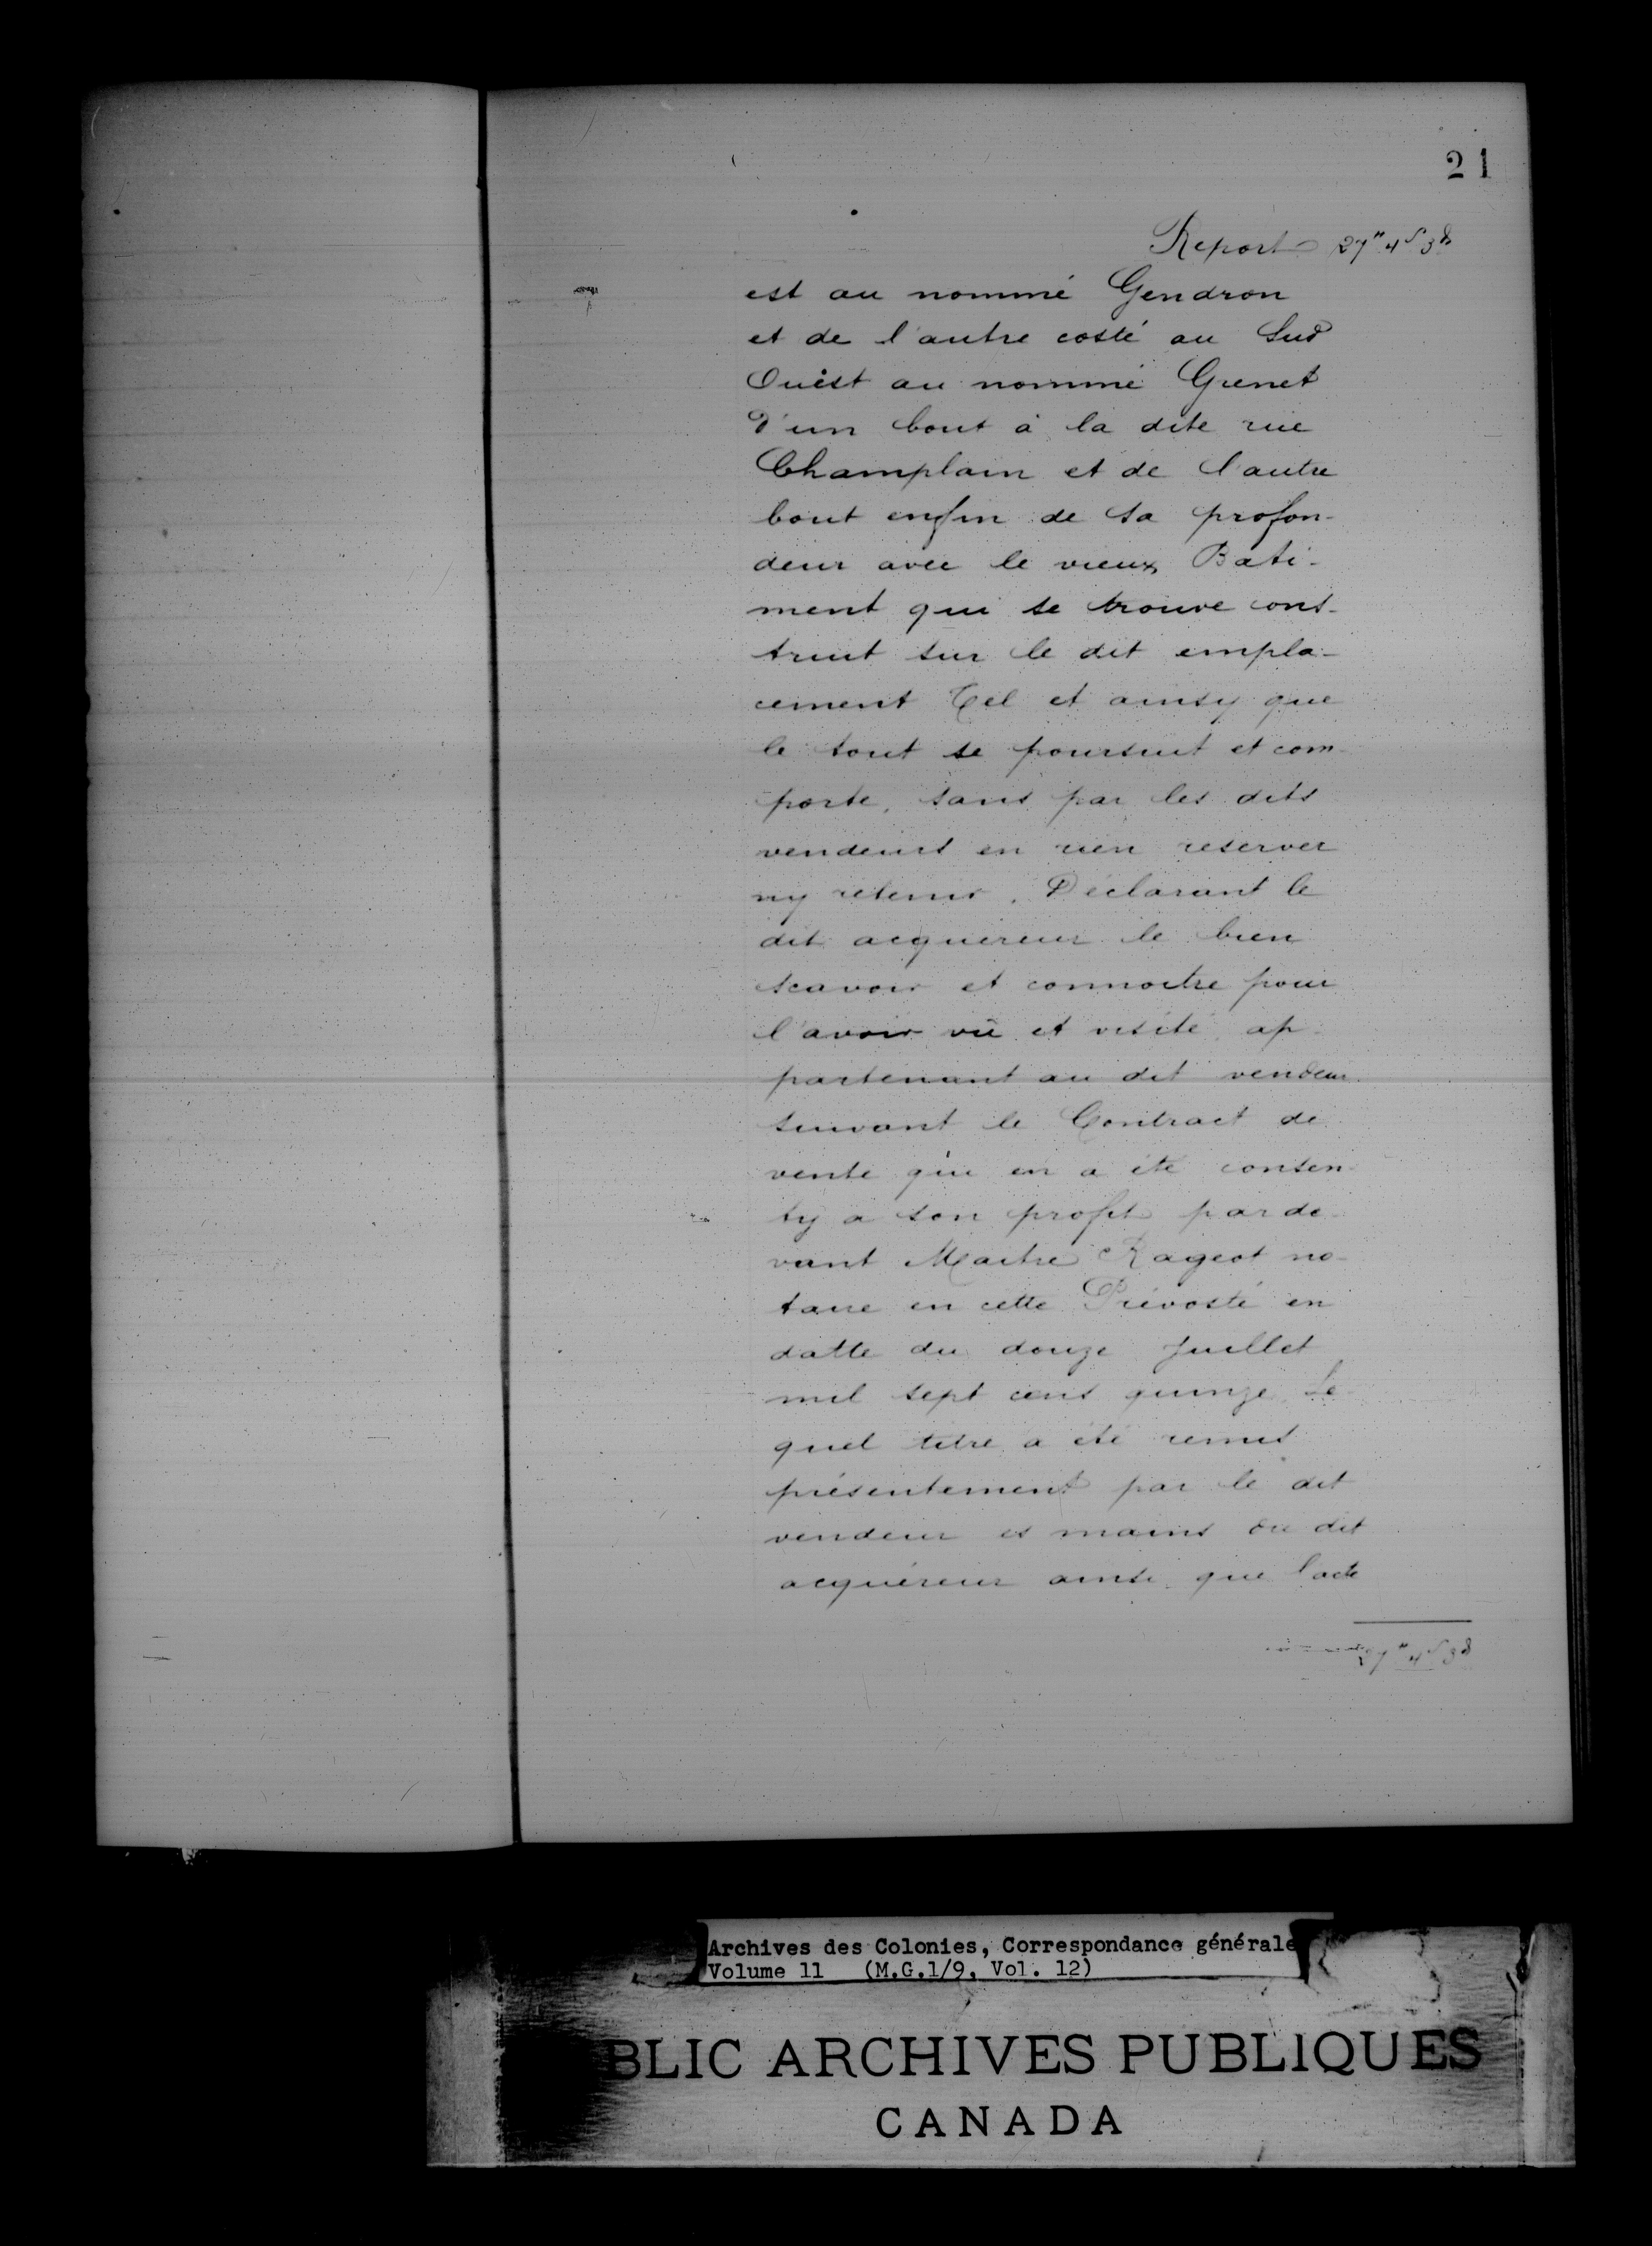 21
Report 27" 4s 3d
est au nommé Gendron
et de l'autre costé au Sud
Ouest au nommé Grenet
D'un bout à la dite rue
Champlain et de l'autre
bout enfin de sa profon-
deur avec le vieux Bati-
ment qui se trouve cons-
truit sur le dit empla-
cement Tel et ainsy que
le tout se poursuit et com-
porte, sans par les dits
vendeurs en rien reserver
ny retenir. Déclarant le
dit acquereur le bien
scavoir et connoitre pour
l'avoir vû et visité, ap-
partenant au dit vendeur
suivant le Contract de
vente qui en a été consen-
ty a son profit par de-
vant Maitre Rageot no-
taire en cette Prévosté en
datte du douze Juillet
mil sept cens quinze Le
quel titre a été remis
présentement par le dit
vendeur es mains du dit
acquéreur ainsi que l'acte
27" 4s 3d
Archives des Colonies, Correspondance générale
Volume 11 (M.G.1/9, Vol. 12)
BLIC ARCHIVES PUBLIQUES
CANADA